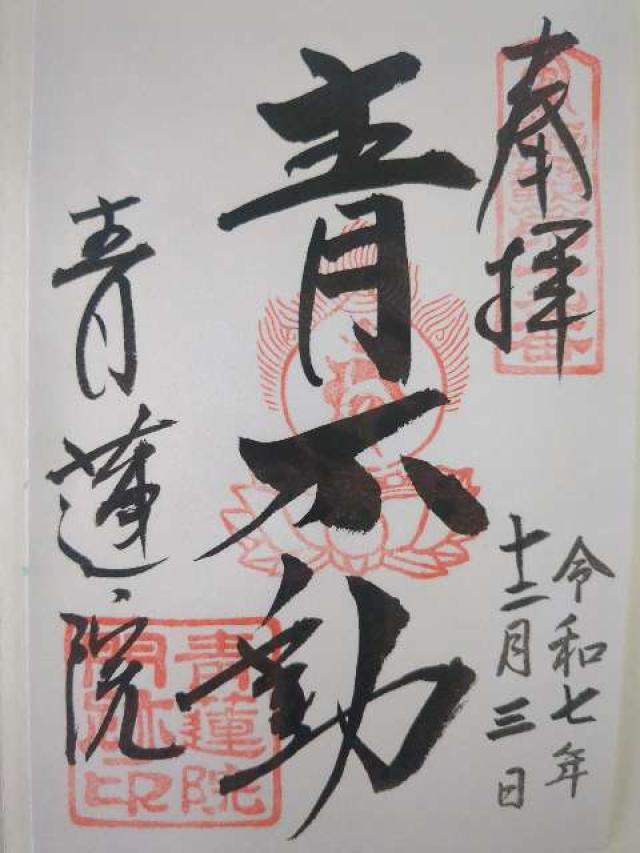 奉拝
令和七年
十二月三日
青不動
青蓮院
青蓮院
門跡印